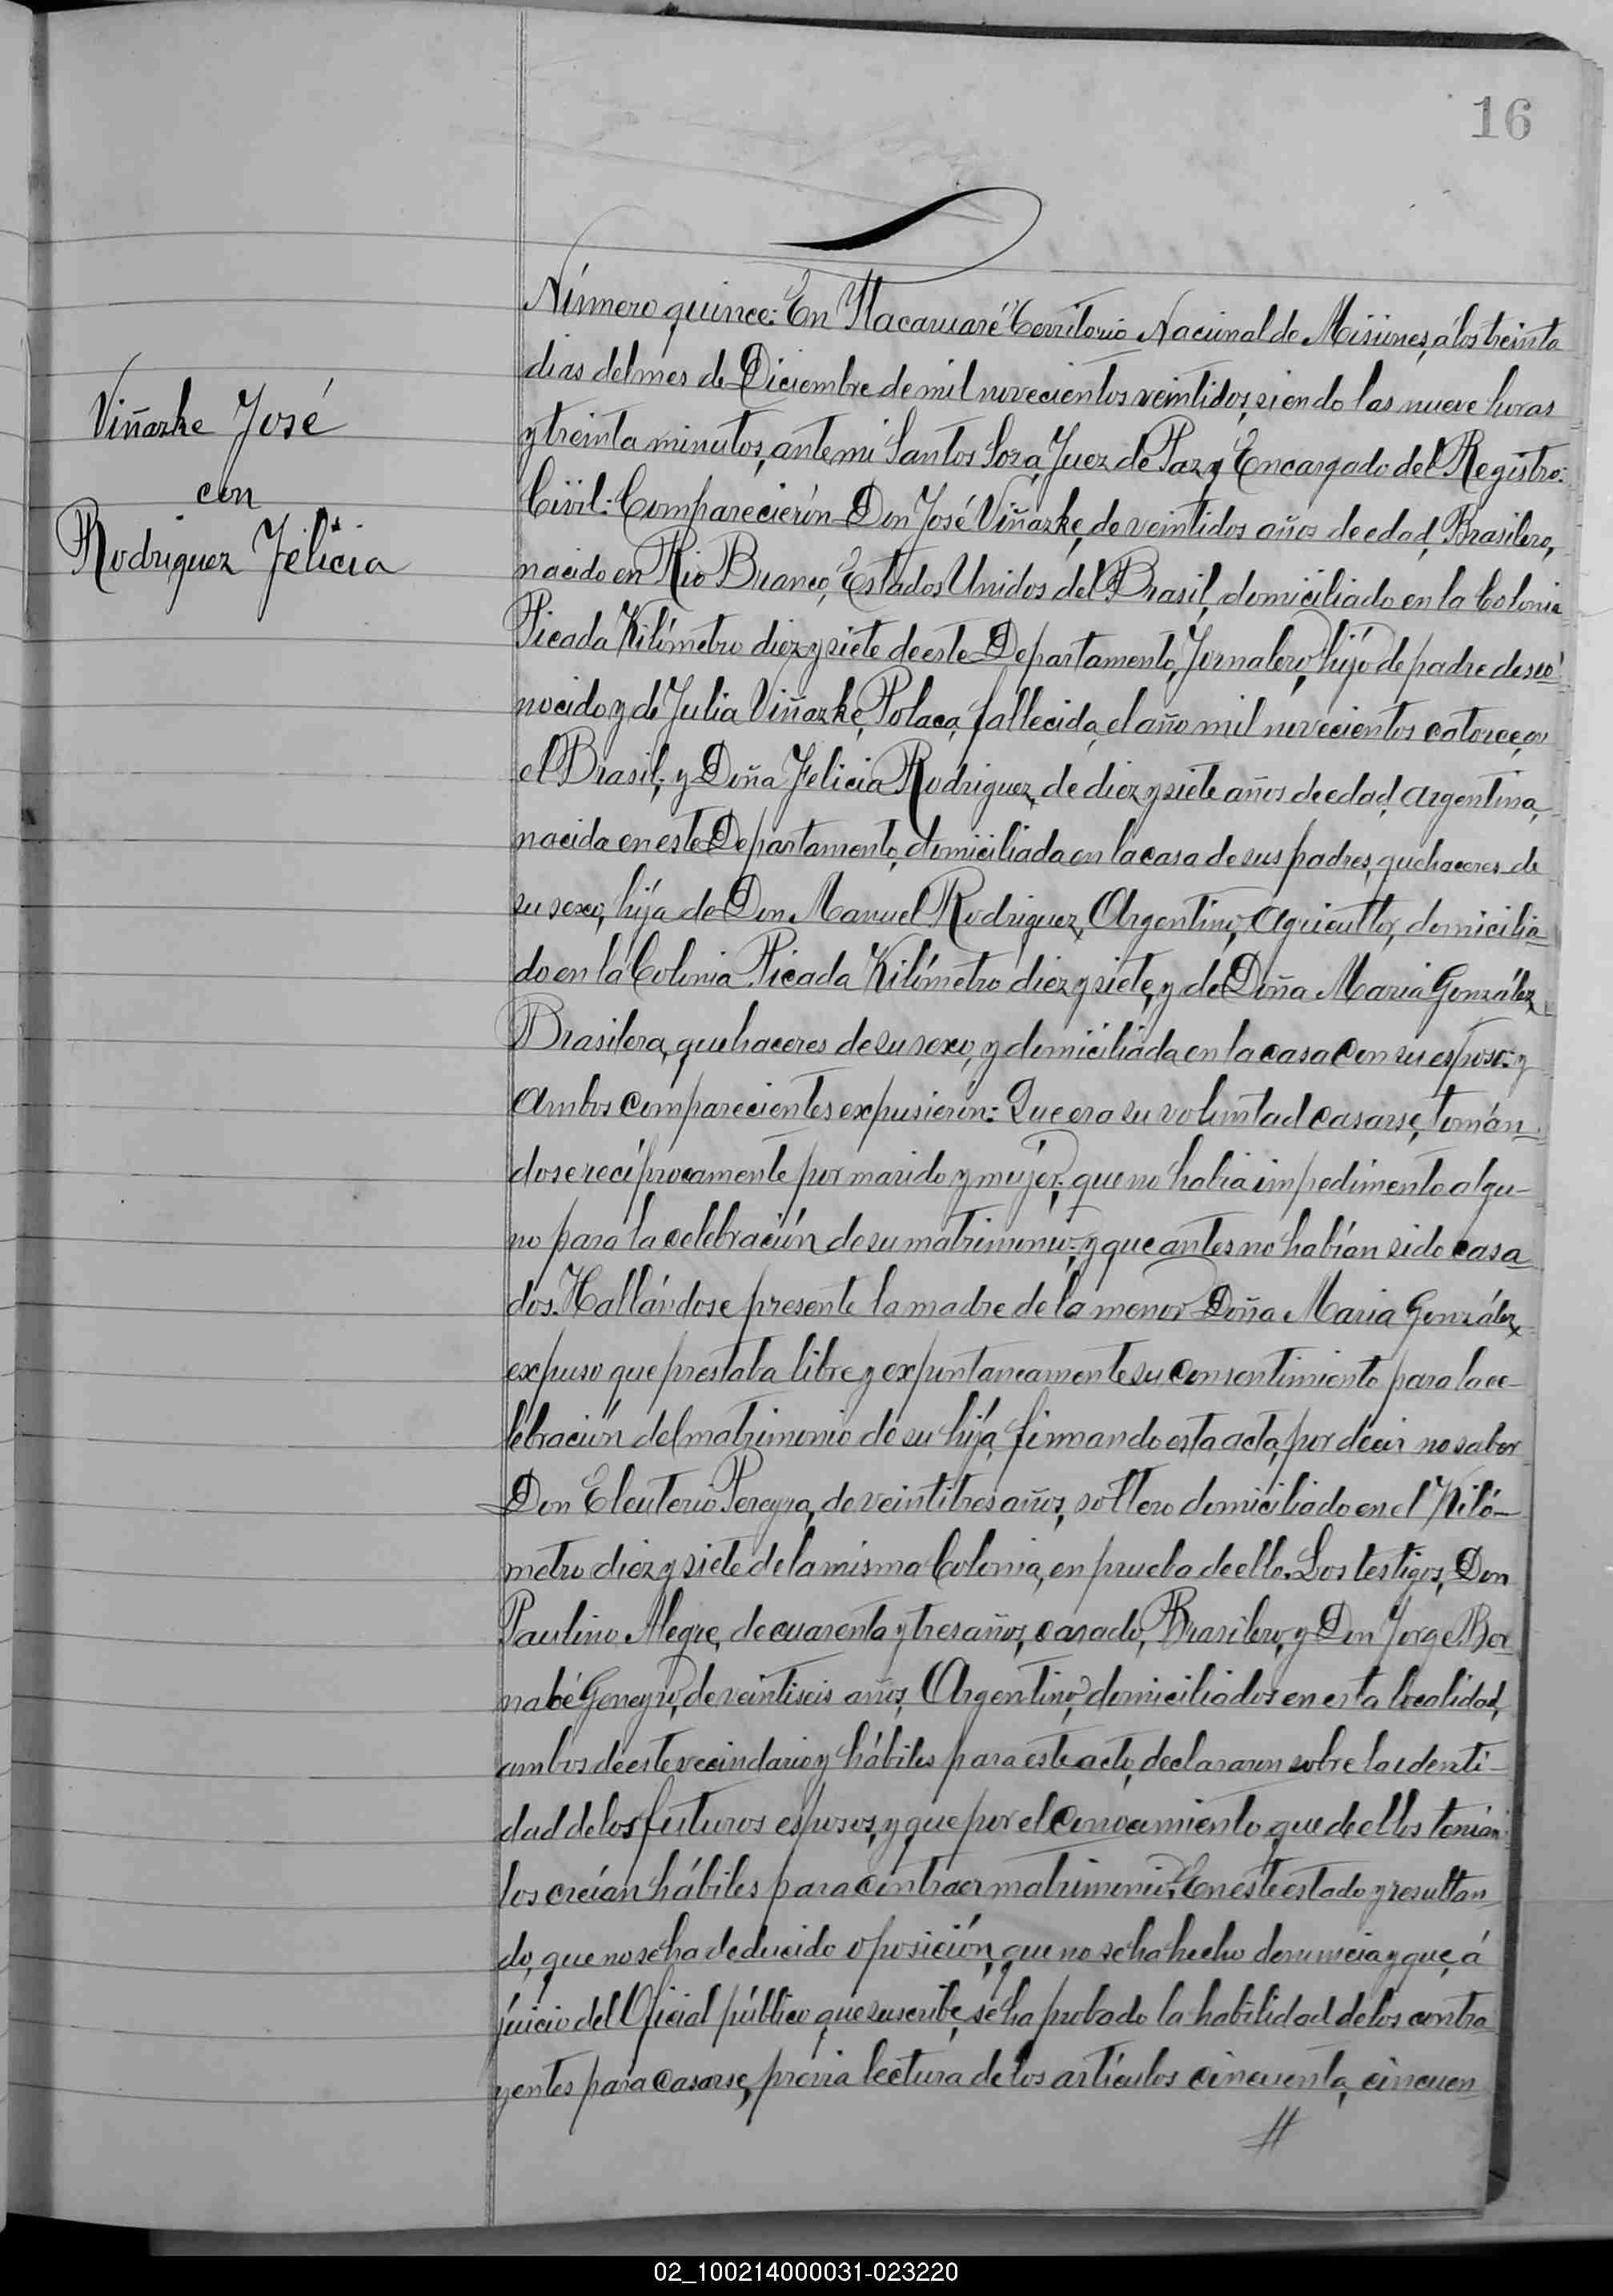 16
Viñarke José
con
Rodriguez Felicia
Número quince: En Itacaruaré Territorio Nacional de Misiones, á los treinta
dias del mes de Diciembre de mil novecientos veintidos, siendo las nueve horas
y treinta minutos, ante mi Santos Sosa, Juez de Paz y Encargado del Registro
Civil: Comparecierón Don José Viñarke, de veintidos años de edad, Brasilero,
nacido en Rio Branco, Estados Unidos del Brasil, domiciliado en la Colonia
Picada Kilómetro diez y siete de este Departamento, Jornalero, hijo de padre desco-
nocido y de Julia Viñarke, Polaca, fallecida, el año mil novecientos catorce, en
el Brasil; y Doña Felicia Rodriguez, de diez y siete años de edad, argentina,
nacida en este Departamento, domiciliada en la casa de sus padres, quehaceres de
su sexo, hija de Don Manuel Rodriguez, Argentino, Agricultor, domicilia-
do en la Colonia Picada Kilómetro diez y siete, y de Doña Maria González,
Brasilera, quehaceres de su sexo, y domiciliada en la casa con su esposo: y
Ambos comparecientes expusieron: Que era su voluntad casarse, tomán-
dose recíprocamente por marido y mujer: que no habia impedimento algu-
no para la celebración de su matrimonio: y que antes no habían sido casa-
dos. Hallándose presente la madre de la menor Doña Maria González,
expuso que prestaba libre y expontaneamente su consentimiento para la ce-
lebración del matrimonio de su hija, firmando esta acta, por décir no saber
Don Eleuterio Pereyra, de veintitres años, soltero domiciliado en el Kiló-
metro diez y siete de la misma Colonia, en prueba de ello. Los testigos, Don
Paulino Alegre, de cuarenta y tres años, casado, Brasilero, y Don Jorge Ber-
nabé Goneyro, de veintiseis años, Argentino, domiciliados en esta localidad,
ambos de este vecindario y hábiles para este acto, declararon sobre la identi-
dad de los futuros esposos, y que por el conocimiento que de ellos tenían
los creían hábiles para contraer matrimonio. En este estado y resultan-
do, que no se ha deducido oposición, que no se ha hecho denuncia y que, á
júicio del Oficial público que suscribe, se ha probado la habilidad de los contra-
yentes para casarse, previa lectura de los artículos cincuenta, cincuen-
//
02_100214000031-023220